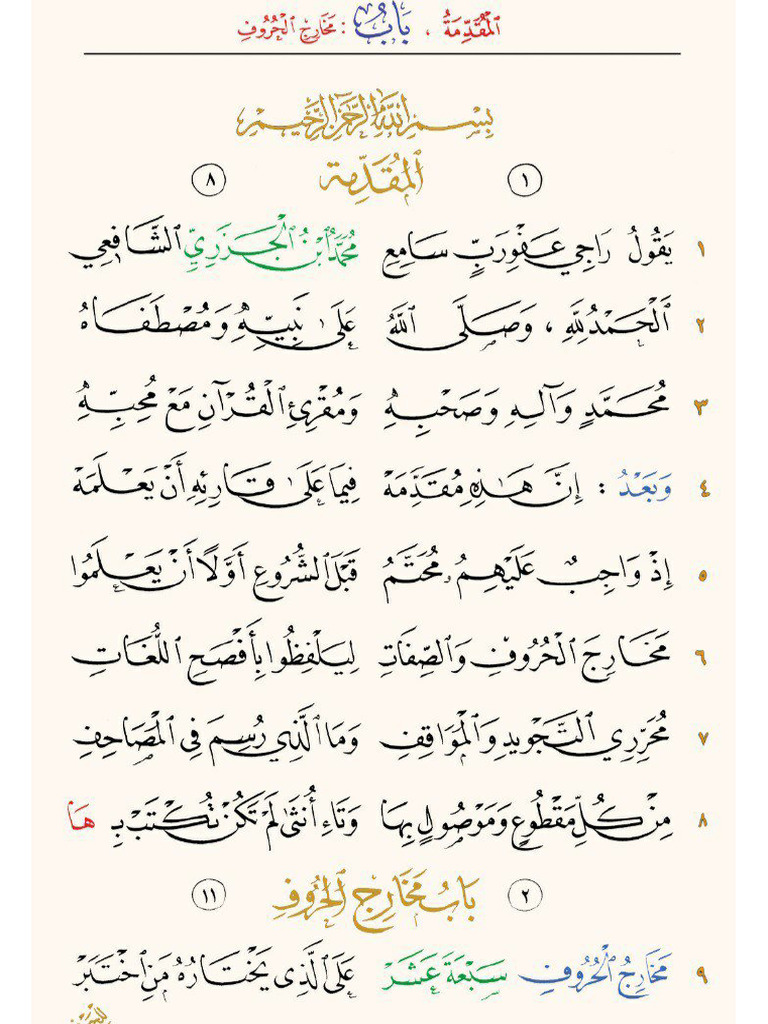 المُقَدِّمَةُ ، بَابُ : مَخَارِجِ الْحُرُوفِ
بِسْمِ اللَّهِ الرَّحْمَٰنِ الرَّحِيمِ
١ المُقَدِّمَة ٨
١ يَقُولُ رَاجِي عَفْوِ رَبٍّ سَامِعِ مُحَمَّدُ ابْنُ الْجَزَرِيِّ الشَّافِعِي
٢ اَلْحَمْدُ لِلَّهِ ، وَصَلَّى اللَّهُ عَلَىٰ نَبِيِّهِ وَمُصْطَفَاهُ
٣ مُحَمَّدٍ وَآلِهِ وَصَحْبِهِ وَمُقْرِئِ الْقُرْآنِ مَعْ مُحِبِّهِ
٤ وَبَعْدُ : إِنَّ هَذِهِ مُقَدِّمَهْ فِيمَا عَلَىٰ قَارِئِهِ أَنْ يَعْلَمَهْ
٥ إِذْ وَاجِبٌ عَلَيْهِمُ مُحَتَّمُ قَبْلَ الشُّرُوعِ أَوَّلًا أَنْ يَعْلَمُوا
٦ مَخَارِجَ الْحُرُوفِ وَالصِّفَاتِ لِيَلْفِظُوا بِأَفْصَحِ اللُّغَاتِ
٧ مُحَرِّرِي التَّجْوِيدِ وَالْمَوَاقِفِ وَمَا الَّذِي رُسِمَ فِي الْمَصَاحِفِ
٨ مِنْ كُلِّ مَقْطُوعٍ وَمَوْصُولٍ بِهَا وَتَاءِ أُنْثَىٰ لَمْ تَكُنْ تُكْتَبْ بِـ هَا
٢ بَابُ مَخَارِجِ الْحُرُوفِ ١١
٩ مَخَارِجُ الْحُرُوفِ سَبْعَةَ عَشَرْ عَلَى الَّذِي يَخْتَارُهُ مَنِ اخْتَبَرْ